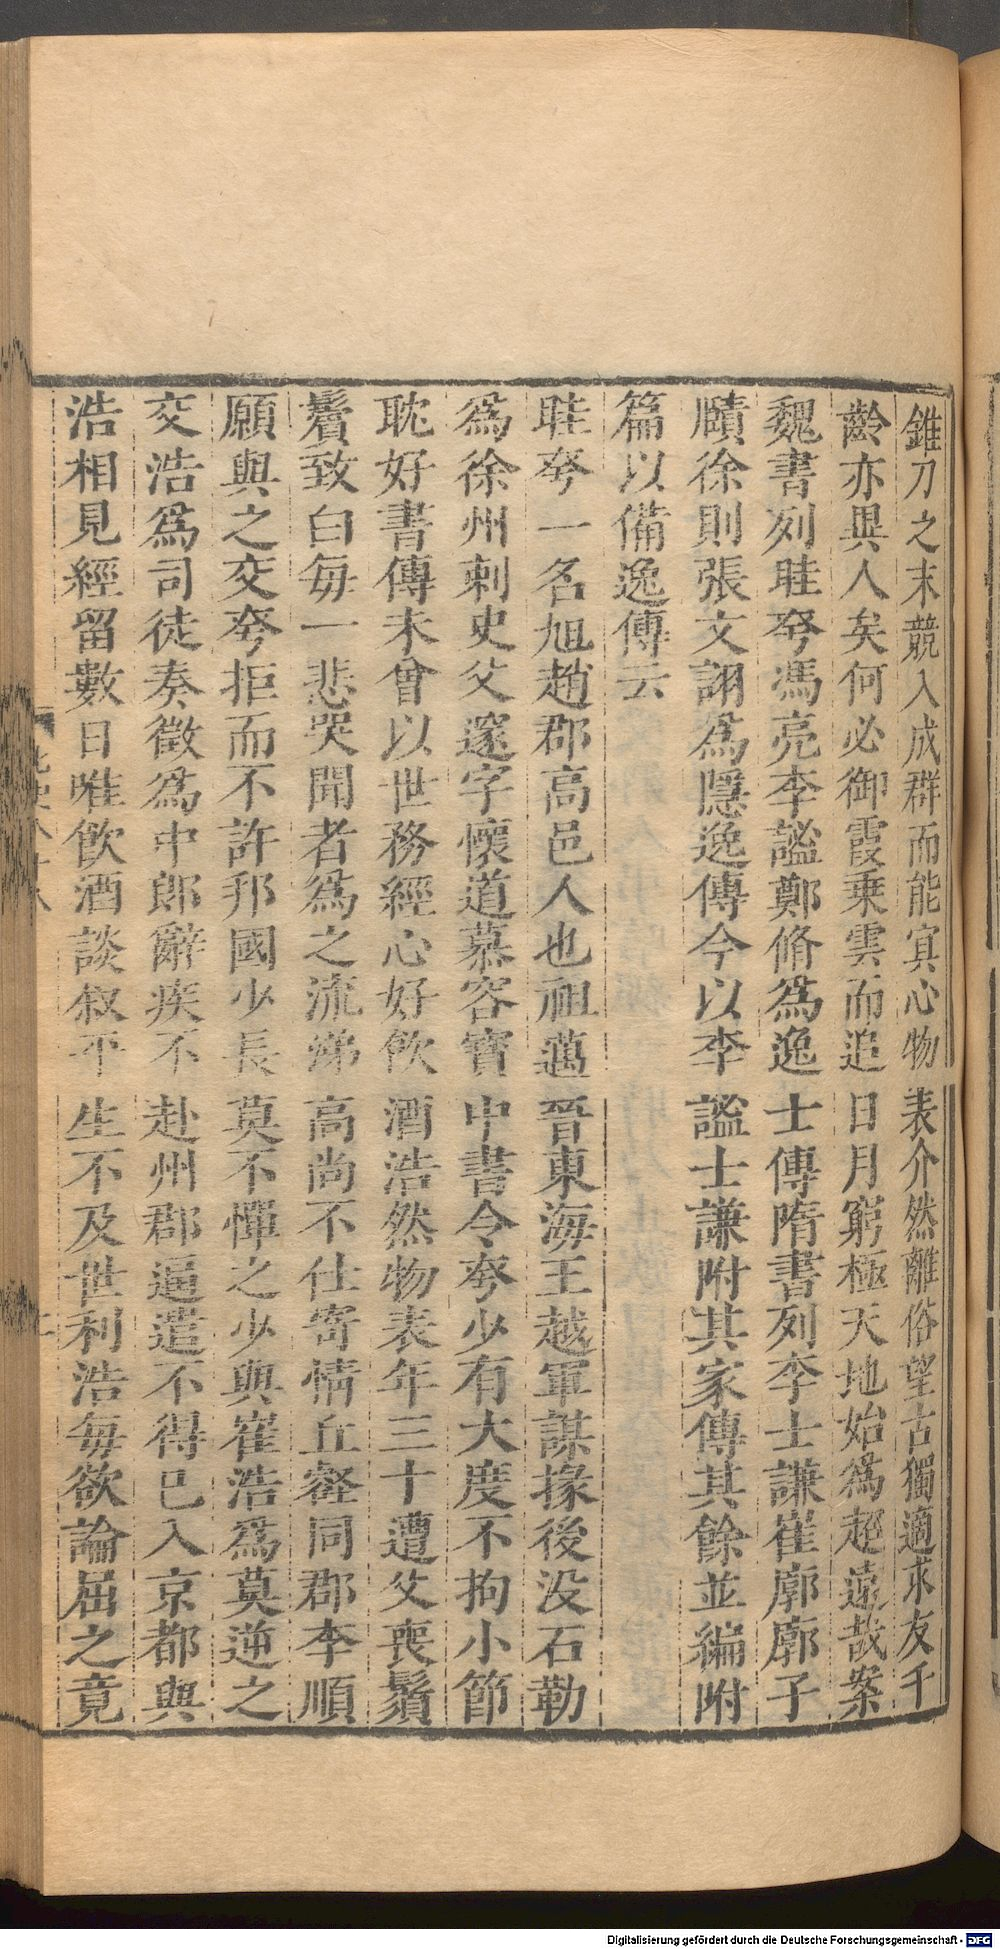 錐刀之末競入成群而能㝠心物表介然離俗望古獨適求友千
齡亦異人矣何必御霞乗雲而追日月窮極天地始爲超遠哉案
魏書列眭夸馮亮李謐鄭脩爲逸士傳隋書列李士謙崔廓廓子
賾徐則張文詡爲隱逸傳今以李謐士謙附其家傳其餘並編附
篇以備逸傳云
眭夸一名旭趙郡高邑人也祖邁晉東海王越軍謀掾後没石勒
爲徐州刺史父邃字懷道慕容寶中書令夸少有大度不拘小節
耽好書傳未曾以世務經心好飲酒浩然物表年三十遭父喪鬚
鬢致白每一悲哭聞者爲之流涕高尚不仕寄情丘壑同郡李順
願與之交夸拒而不許邦國少長莫不憚之少與崔浩爲莫逆之
交浩爲司徒奏徵爲中郎辭疾不赴州郡逼遣不得已入京都與
浩相見經留數日唯飲酒談叙平生不及世利浩每欲論屈之竟
Digitalisierung gefördert durch die Deutsche Forschungsgemeinschaft - DFG